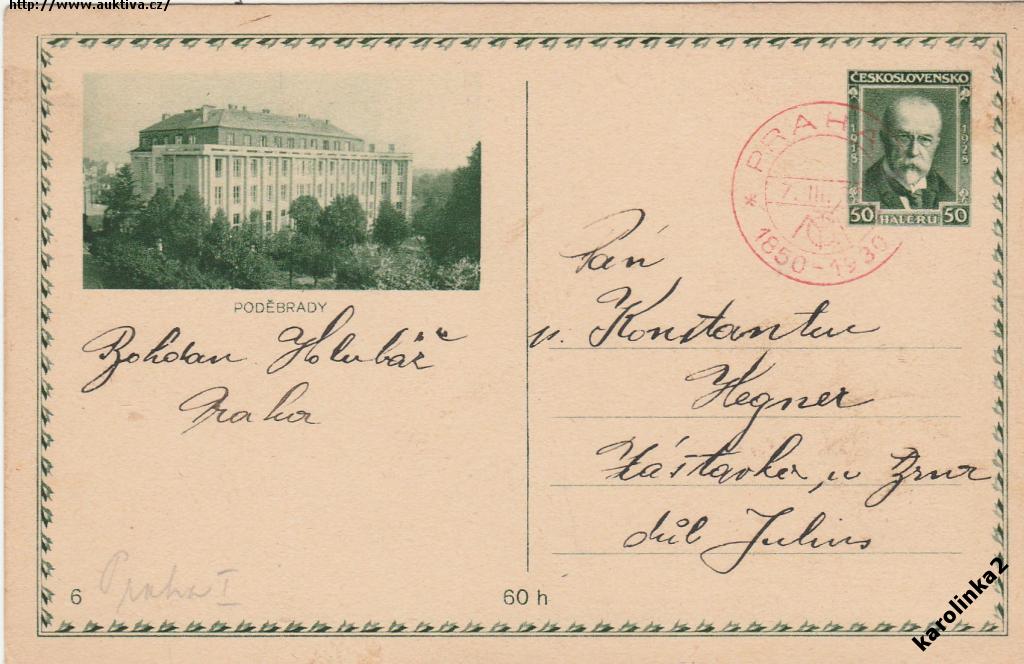 http://www.auktiva.cz/
ČESKOSLOVENSKO
1918 1928
50 HALÉRŮ 50
* PRAHA
7. III.
1850-1930
PODĚBRADY
Bohdan Holubář
Praha
Pán
p. Konstantin
Hegner
Zástavka, u Brna
důl Julius
Praha I
6
60 h
karolinka2